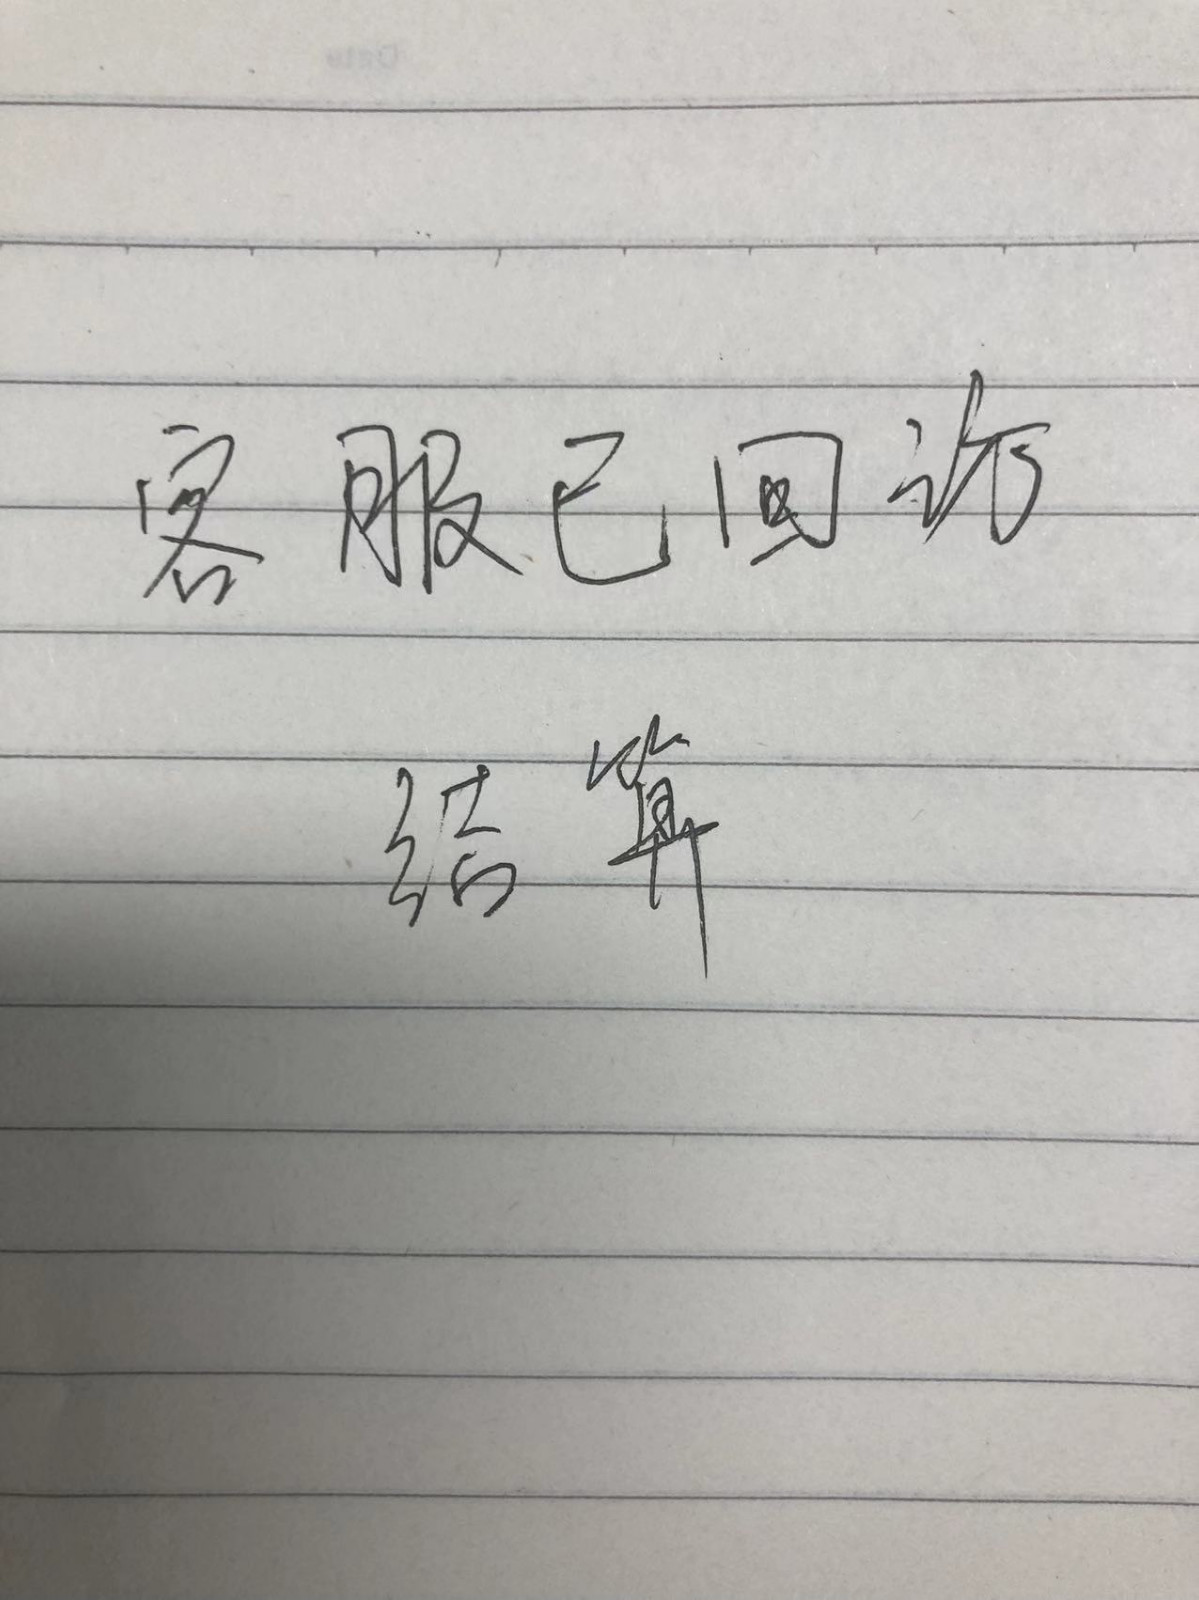 客服已回访
结算